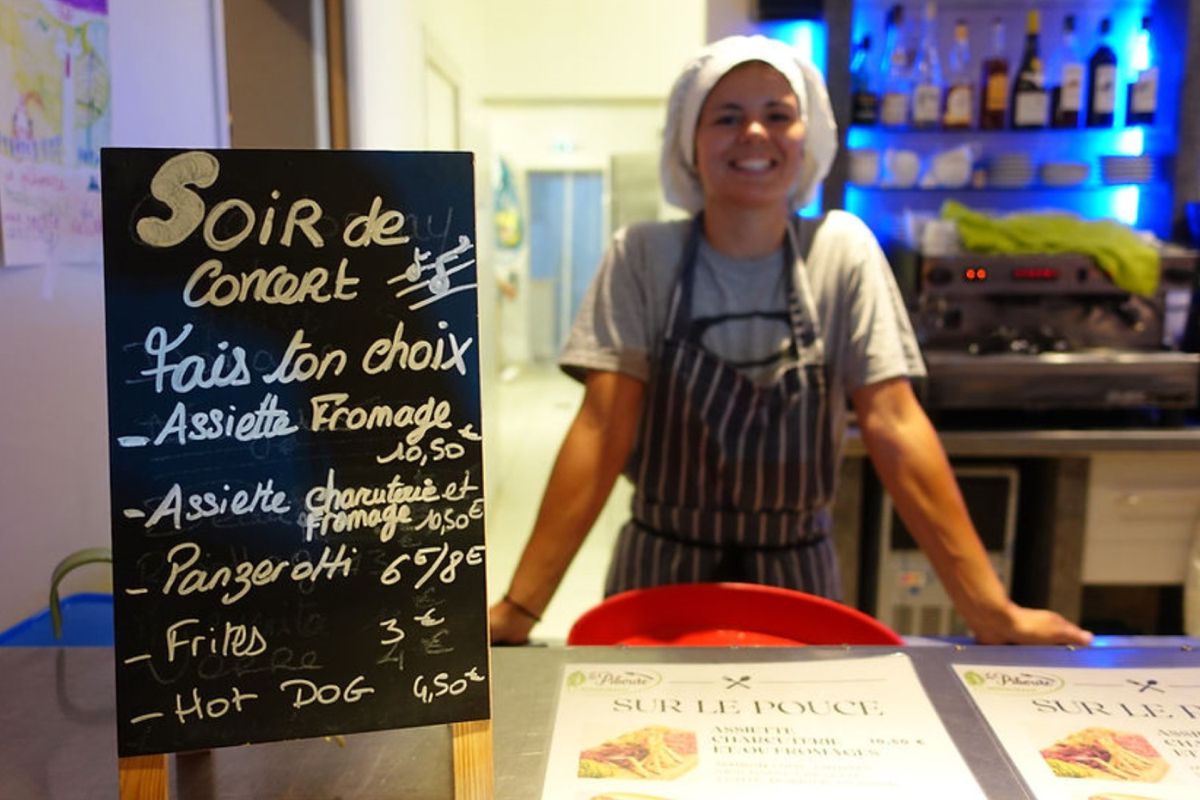 Soir de
concert
Fais ton choix
- Assiette Fromage
10,50€
- Assiette charcuterie et
fromage 10,50€
- Panzerotti 6€/8€
- Frites 3€
- Hot DOG 4,50€
SUR LE POUCE
ASSIETTE
CHARCUTERIE 10,50 €
ET OU FROMAGES
SUR LE